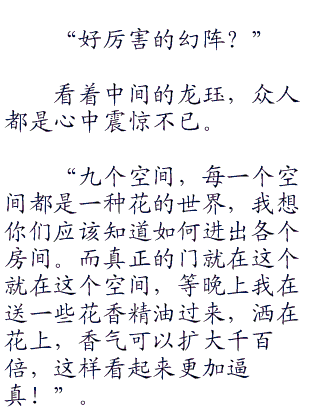 “好厉害的幻阵？”
看着中间的龙珏，众人
都是心中震惊不已。
“九个空间，每一个空
间都是一种花的世界，我想
你们应该知道如何进出各个
房间。而真正的门就在这个
就在这个空间，等晚上我在
送一些花香精油过来，洒在
花上，香气可以扩大千百
倍，这样看起来更加逼
真！”。